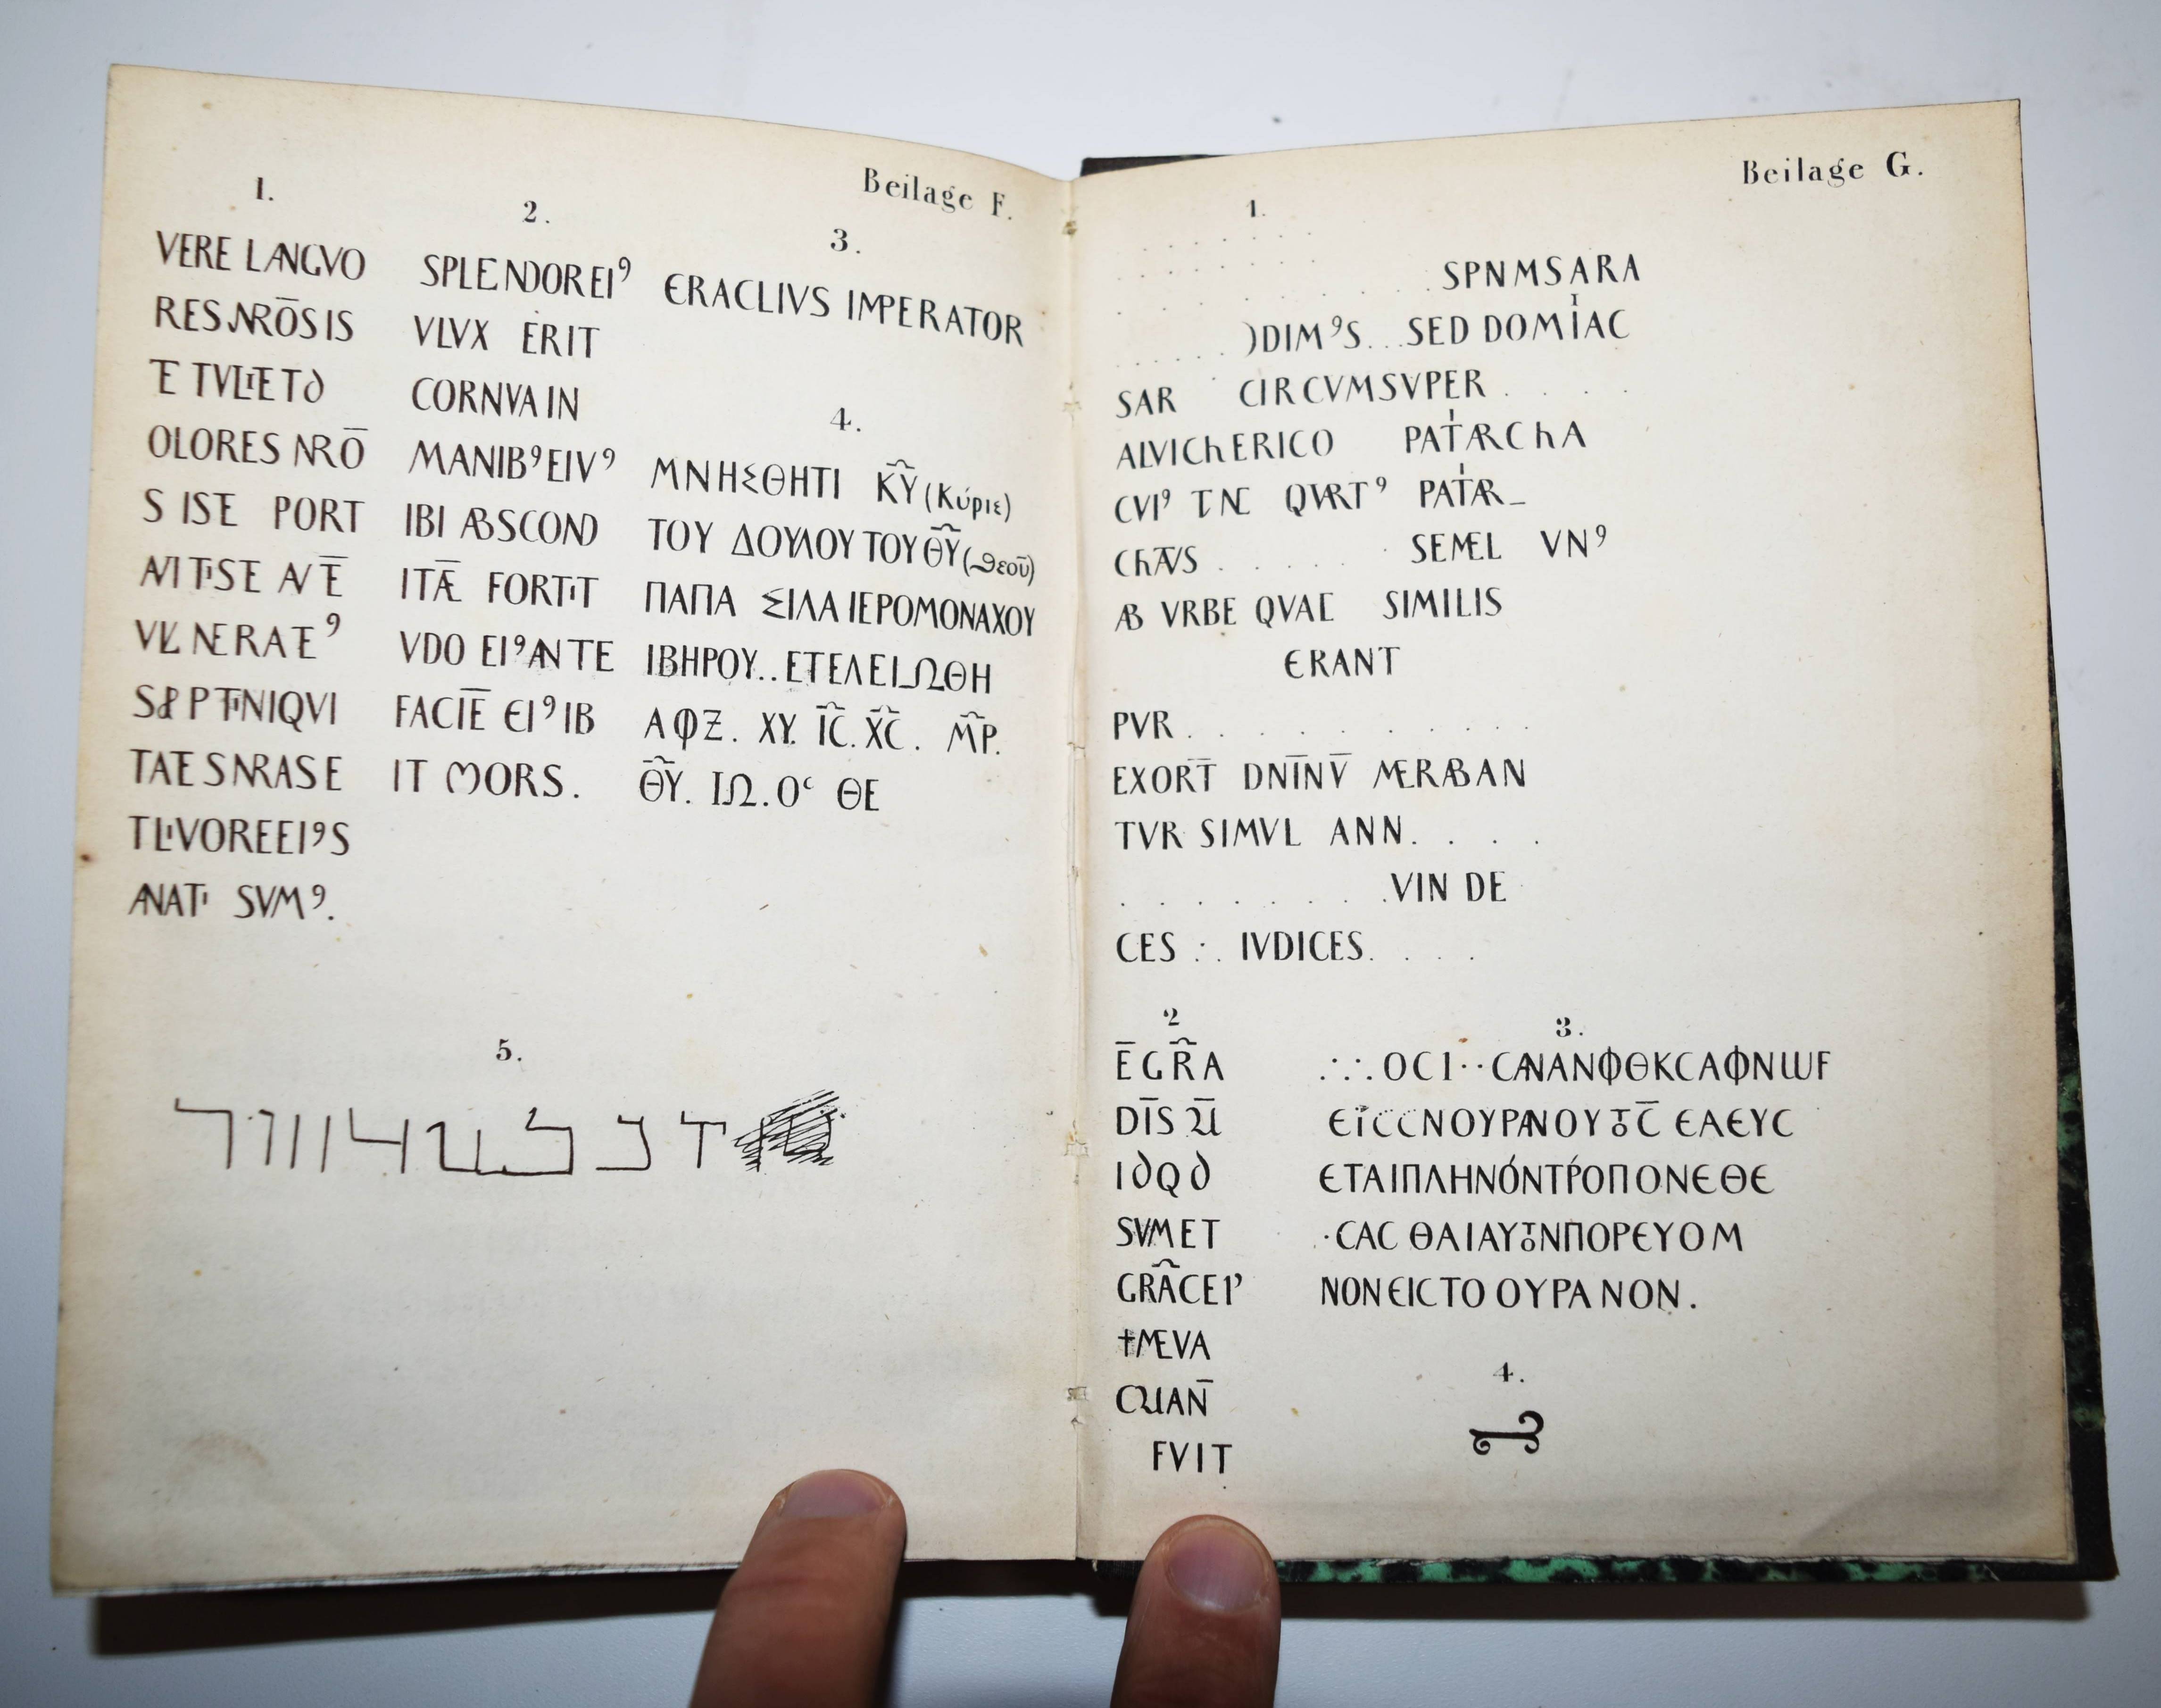 Beilage F.
1.
VERE LANGVO
RES NRŌS IS
E TVLIT ET D
OLORES NRŌ
S ISE PORT
AVIT ISE AVĒ
VLNERATꝰ
TAT ES NRAS E
T LIVORE EIꝰ S
ANATI SVMꝰ.
2.
SPLENDOR EIꝰ
VLVX ERIT
CORNVA IN
MANIBꝰ EIVꝰ
IBI ABSCOND
ITĀE FORTIT
VDO EIꝰ ANTE
FACIĒ ЄIꝰ IB
IT MORS.
3.
ЄRACLIVS IMPERATOR
4.
ΜΝΗΣΘΗΤΙ Κ͞Υ (Κύριε)
ΤΟΥ ΔΟΥΛΟΥ ΤΟΥ Θ͞Υ (θεοῦ)
ΠΑΠΑ ΣΙΛΑ ΙΕΡΟΜΟΝΑΧΟΥ
ΙΒΗΡΟΥ.. ΕΤΕΛΕΙΩΘΗ
ΑΦΖ. ΧΥ. Ι͞C. Χ͞C. Μ͞Ρ.
Θ͞Υ. ΙΩ. Οᶜ ΘΕ
5.
Beilage G.
1.
SPNMSARA
)DIMꝰS...SED DOMIAC
SAR CIRCVMSVPER . . .
ALVIChERICO PATARChA
CVIꝰ TNE QVARTꝰ PATAR_
ChAVS . . . . . SEMEL VNꝰ
AB VRBE QVAE SIMILIS
ЄRANT
PVR . . . . . . . .
EXORT̄ DNĪNV̄ MERABAN
TVR SIMVL ANN. . . .
. . . . . . . .VIN DE
CES :. IVDICES. . . .
2
ĒGR̄A
DĪS
I∂Q∂
SVM ET
GRĀCEI'
†MEVA
FVIT
3.
∴.ΟCΙ··CΑΝΑΝΦΘΚCΑΦΝѠF
ЄΪCCΝΟΥΡΑΝΟΥ ȢC̄ ЄΛЄΥC
ЄΤΑΙΠΛΗΝΌΝΤΡΌΠΟΝЄΘЄ
·CΑC ΘΑΙΑΥȢΝΠΟΡЄΥΟΜ
ΝΟΝЄΙCΤΟ ΟΥΡΑΝΟΝ.
4.